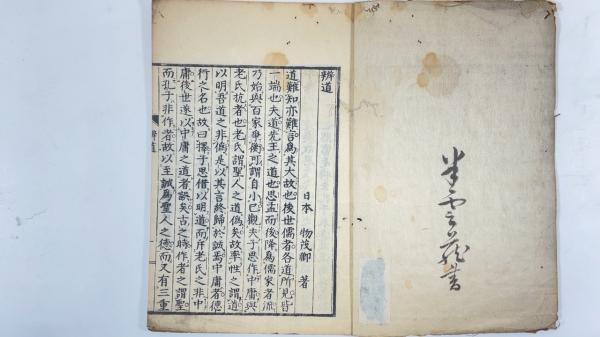 辨道
日本 物茂卿 著
道難知亦難言爲其大故也後世儒者各道所見皆
一端也夫道先王之道也思孟而後降爲儒家者流
乃始與百家爭衡可謂自小已觀夫子思作中庸與
老氏抗者也老氏謂聖人之道僞矣故率性之謂道
以明吾道之非僞是以其言終歸於誠焉中庸者德
行之名也故曰擇子思借以明道而斥老氏之非中
庸後世遂以中庸之道者誤矣古之時作者之謂聖
而孔子非作者故以至誠爲聖人之德而又有三重
辨道